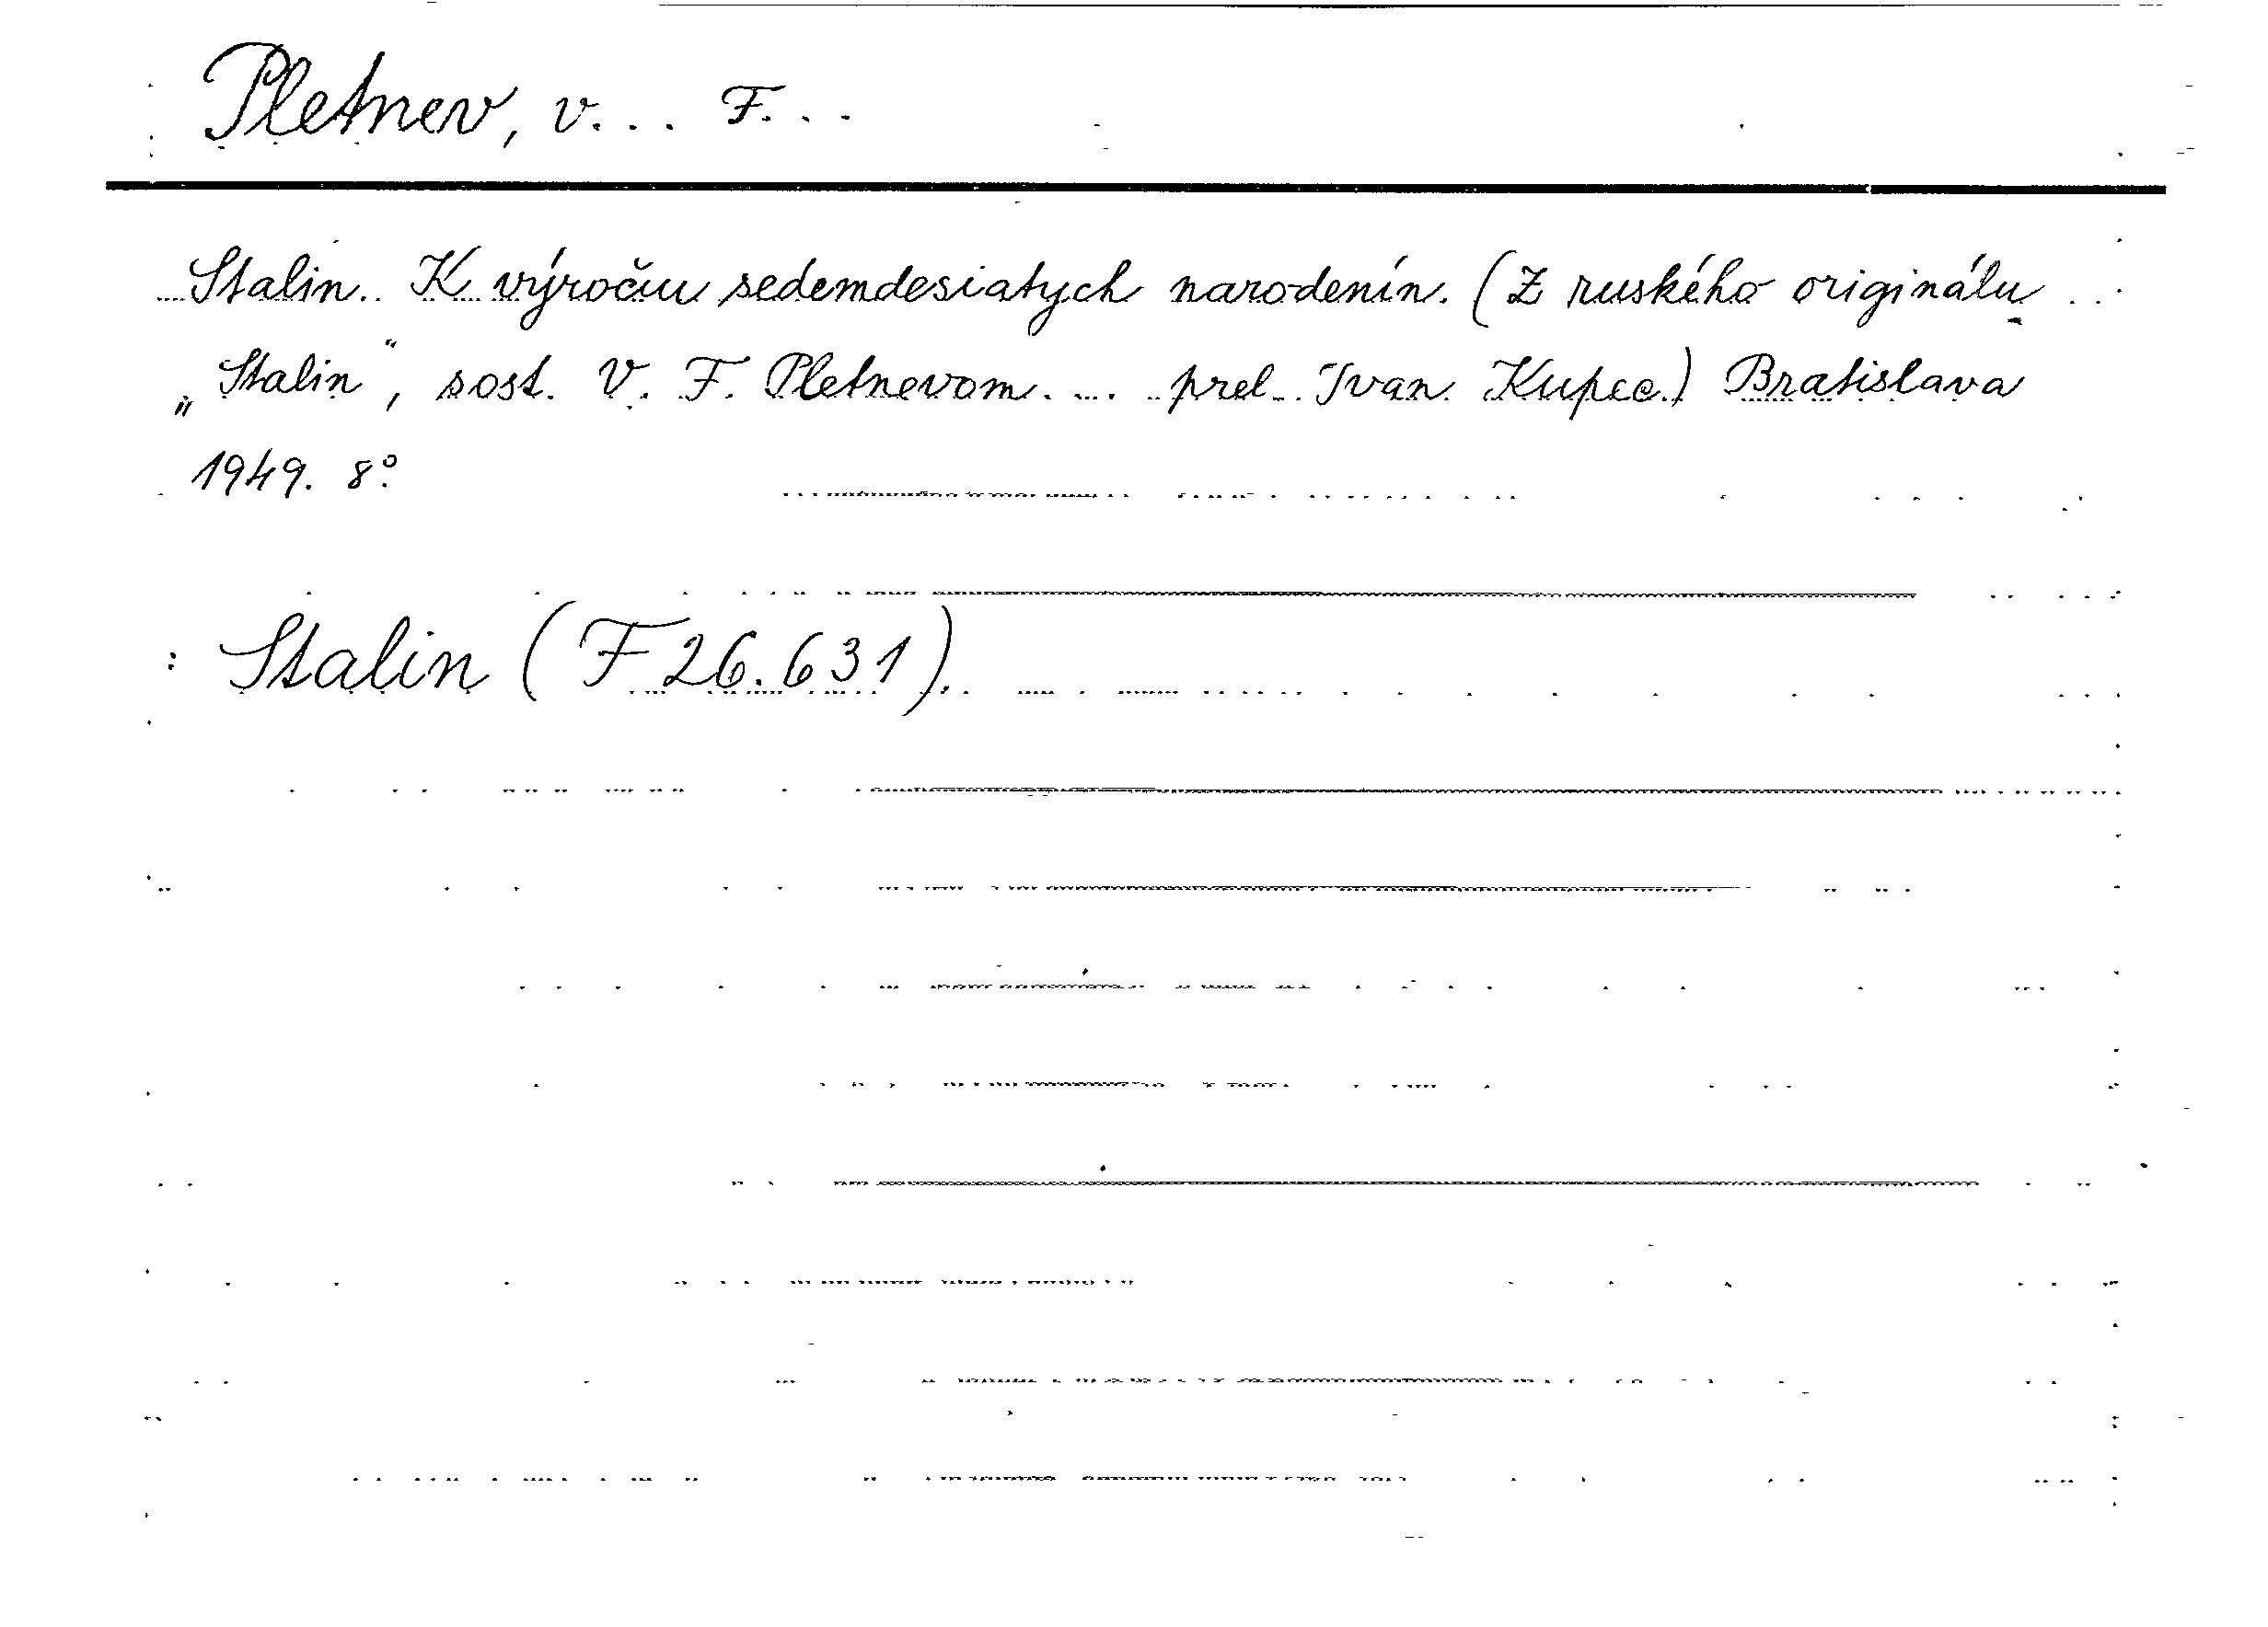 Pletnev, V... F...
Stalin. K výročiu sedemdesiatych narodenín. (Z ruského originálu
„Stalin", sost. V. F. Pletnevom. ... prel. Ivan Kupec.) Bratislava
1949. 8°.
Stalin (F 26.631).